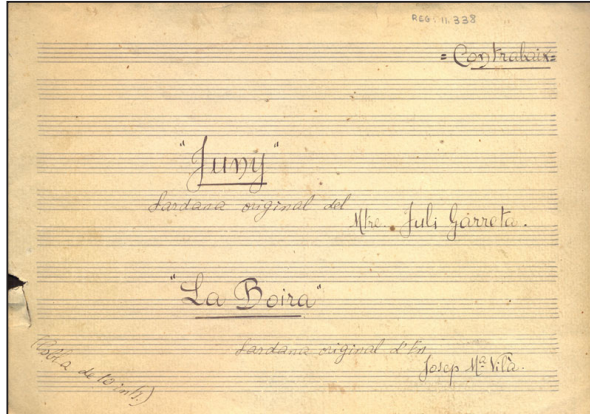 REG. n. 338
= Contrabaix =
"Juny"
Sardana original del
Mtre. Juli Garreta.
"La Boira"
Sardana original d'En
Josep Mª Vilà.
(Cobla de 10 inst.)